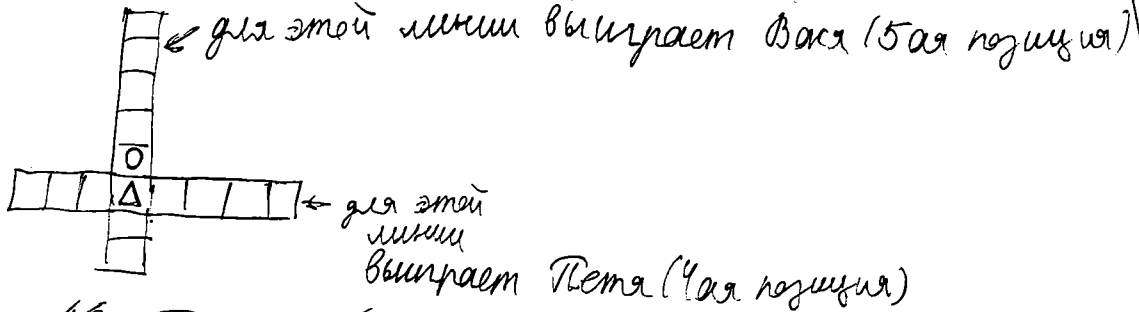 для этой линии выиграет Вася (5ая позиция)
О
Δ
для этой
линии
выиграет Петя (4ая позиция)